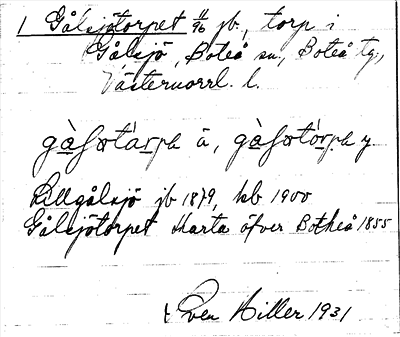 1 Gålsjötorpet 11/96 jb., torp i
Gålsjö, Boteå sn., Boteå tg.,
Västernorrl. l.
gàlsœtárpə ä, gàlsœtórpə y.
Lillgålsjö jb 1879, kb 1900
Gålsjötorpet Karta öfver Botheå 1855
Sven Hiller 1931